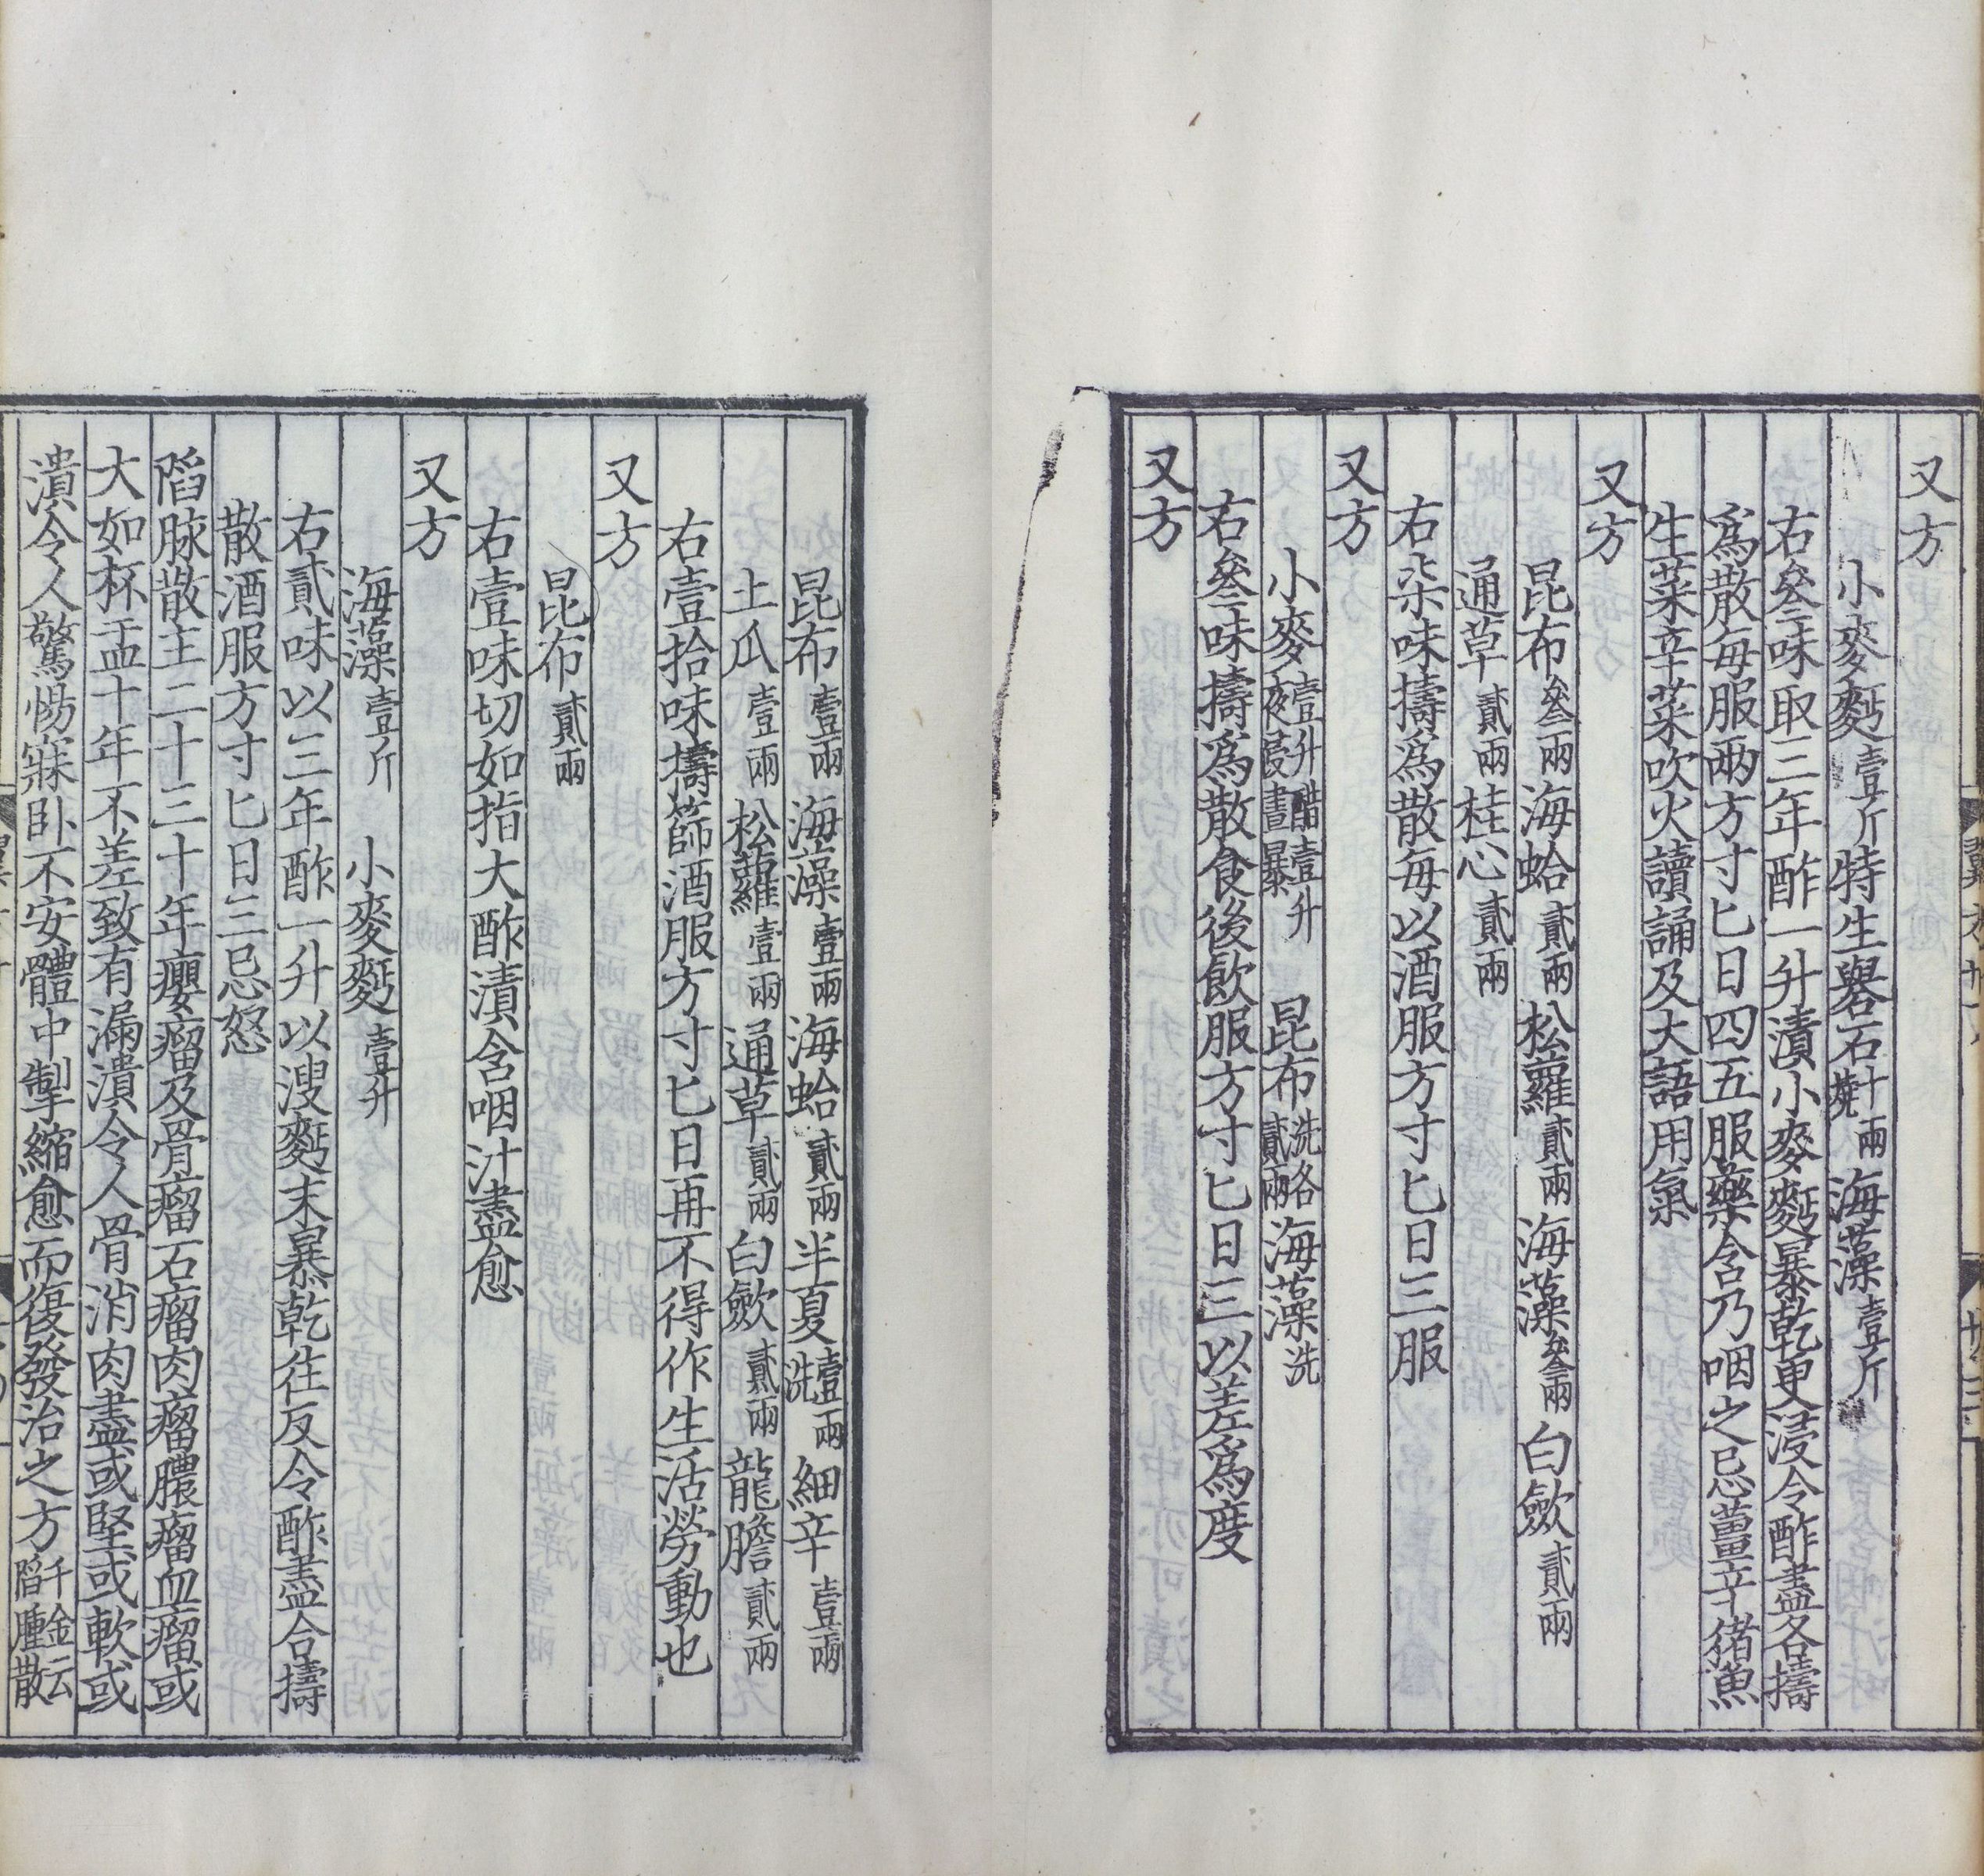 又方
小麥麪壹斤特生礐石十兩燒海藻壹斤
右叄味取三年酢一升漬小麥麪暴乾更浸令酢盡各擣
爲散每服兩方寸匕日四五服藥含乃咽之忌薑辛猪魚
生菜辛菜吹火讀誦及大語用氣
又方
昆布叄兩海蛤貳兩松蘿貳兩海藻叄兩白歛貳兩
通草貳兩桂心貳兩
右柒味擣爲散每以酒服方寸匕日三服
又方
小麥壹升醋壹升夜浸晝暴昆布洗各貳兩海藻洗
右叄味擣爲散食後飲服方寸匕日三以差爲度
又方
昆布壹兩海藻壹兩海蛤貳兩半夏壹兩洗細辛壹兩
土瓜壹兩松蘿壹兩通草貳兩白歛貳兩龍膽貳兩
右壹拾味擣篩酒服方寸匕日再不得作生活勞動也
又方
昆布貳兩
右壹味切如指大酢漬含咽汁盡愈
又方
海藻壹斤小麥麪壹升
右貳味以三年酢一升以溲麪末暴乾往反令酢盡合擣
散酒服方寸匕日三忌怒
陷脉散主二十三十年癭瘤及骨瘤石瘤肉瘤膿瘤血瘤或
大如杯盂十年不差致有漏潰令人骨消肉盡或堅或軟或
潰令人驚惕寐卧不安體中掣縮愈而復發治之方千金云陷腫散